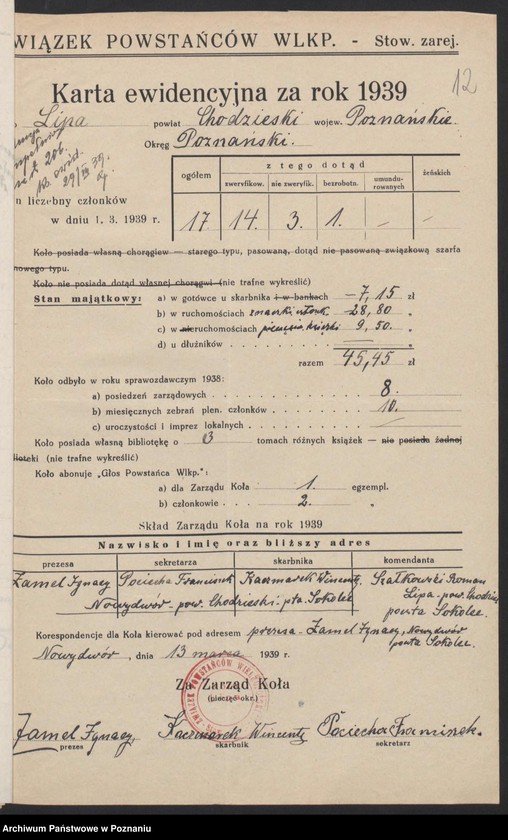 WIĄZEK POWSTAŃCÓW WLKP. - Stow. zarej.
12
Karta ewidencyjna za rok 1939
Lipa powiat Chodzieski wojew. Poznańskie
Okręg Poznański.
ogółem z tego dotąd żeńskich
zweryfikow. nie zweryfik. bezrobotn. umundurowanych
n liczebny członków
w dniu 1. 3. 1939 r. 17 14. 3. 1. — —
Koło posiada własną chorągiew — starego typu, pasowaną, dotąd nie pasowaną związkową szarfa
nowego typu.
Koło nie posiada dotąd własnej chorągwi (nie trafne wykreślić)
Stan majątkowy: a) w gotówce u skarbnika i w bankach — 7,15 zł
b) w ruchomościach 28,80 "
c) w nieruchomościach 9,50. "
d) u dłużników — "
razem 45,45 zł
Koło odbyło w roku sprawozdawczym 1938:
a) posiedzeń zarządowych 8.
b) miesięcznych zebrań plen. członków 10.
c) uroczystości i imprez lokalnych —
Koło posiada własną bibljotekę o 3 tomach różnych książek — nie posiada żadnej
lioteki (nie trafne wykreślić)
Koło abonuje „Głos Powstańca Wlkp.":
a) dla Zarządu Koła 1. egzempl.
b) członkowie 2. "
Skład Zarządu Koła na rok 1939
Nazwisko i imię oraz bliższy adres
prezesa sekretarza skarbnika komendanta
Zamel Ignacy Pociecha Franciszek Kaczmarek Wincenty Szałkowski Roman
Nowydwór - pow. Chodzieski - pta. Sokolec Lipa - pow. Chodzież
poczta Sokolec.
Korespondencje dla Koła kierować pod adresem prezesa - Zamel Ignacy, Nowydwór
poczta Sokolec.
Nowydwór, dnia 13 marca 1939 r.
Za Zarząd Koła
(pieczęć okr.)
Zamel Ignacy Kaczmarek Wincenty Pociecha Franciszek.
prezes skarbnik sekretarz
Archiwum Państwowe w Poznaniu